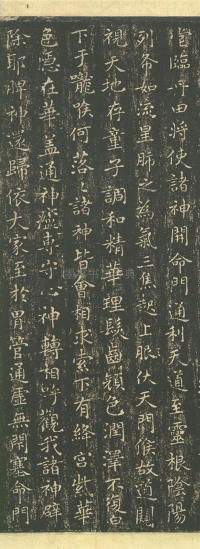 皆臨呼由將使諸神開命門通利天道至靈根陰陽
列布如流星肺之為氣三焦起上服伏天門候故道闚
視天地存童子調和精華理髮齒顏色潤澤不復白
下于嚨喉何落落諸神皆會相求索下有絳宮紫華
色隱在華蓋通神廬專守心神轉相呼觀我諸神辟
除耶脾神還歸依大家至於胃管通虛無閉塞命門